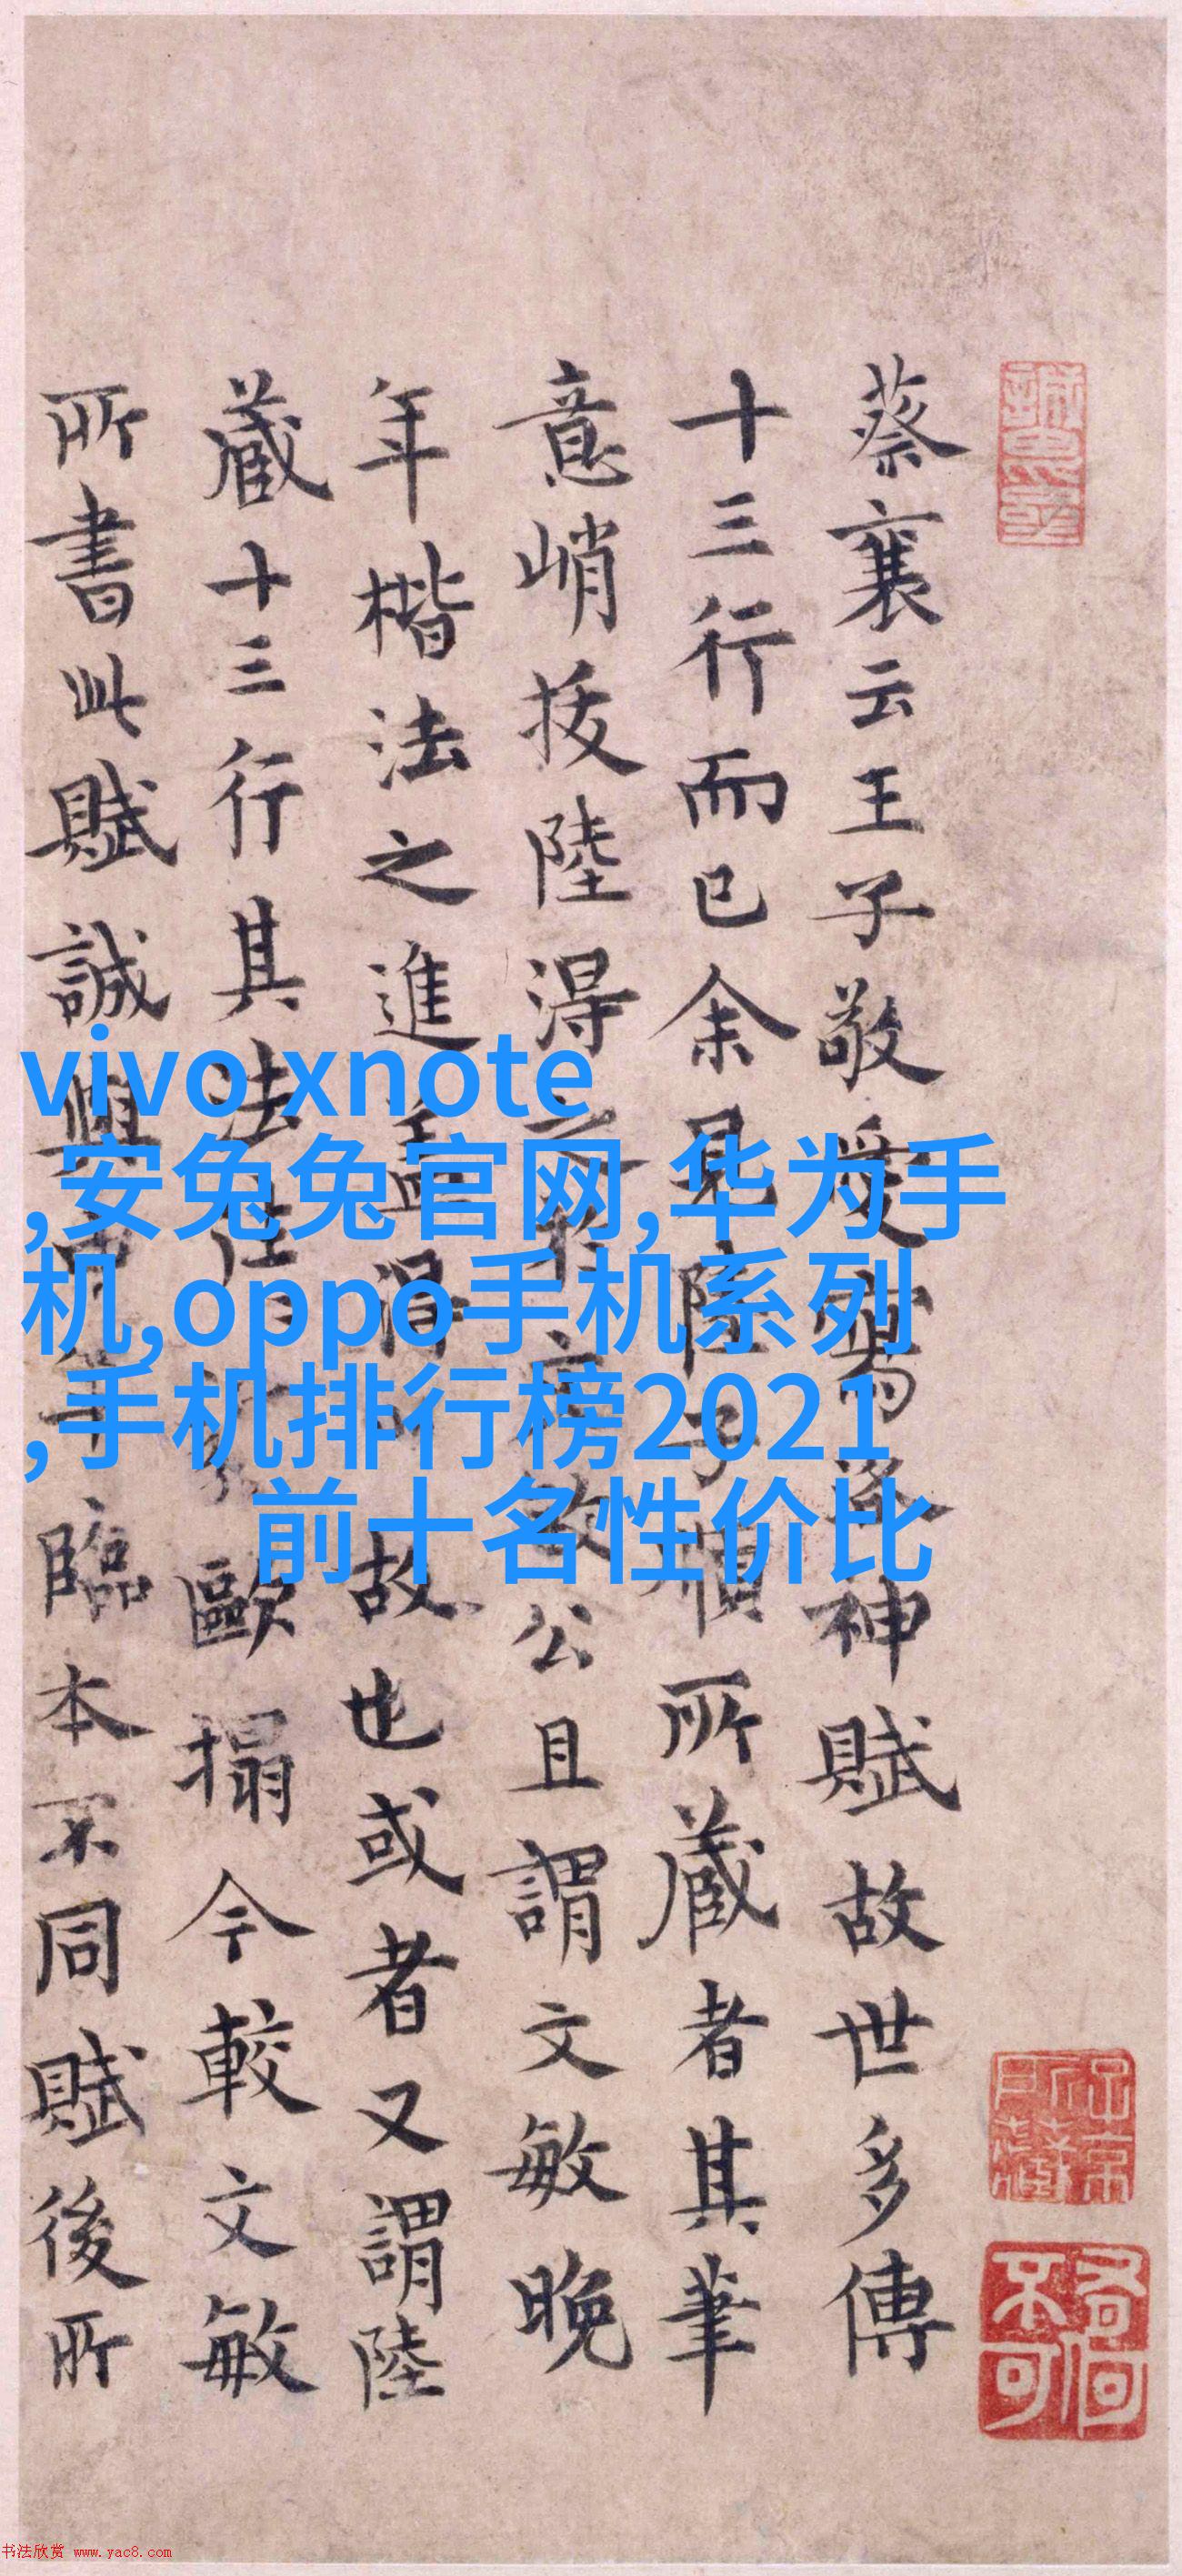 蔡襄云王子敬愛寫洛神賦故世多傳
十三行而已余見陸子順所藏者其筆
意峭拔陸得之於文敏公且謂文敏晚
年楷法之進蓋得 故也或者又謂陸
藏十三行其法往 歐搨今較文敏
所書此賦誠與 年臨本不同賦後所
vivo xnote
,安兔兔官网,华为手
机,oppo手机系列
,手机排行榜2021
前十名性价比
不可
书法欣赏 www.yac8.com